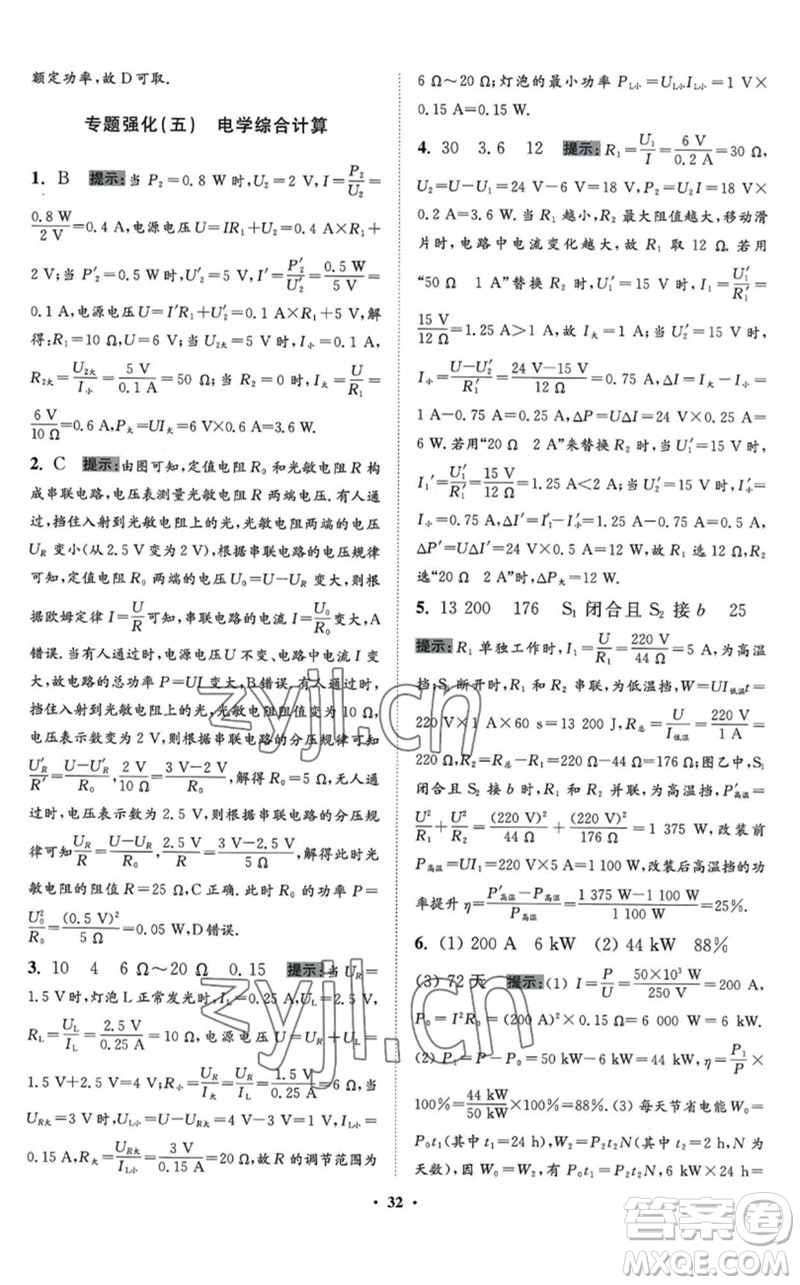 额定功率,故 D 可取.
专题强化(五) 电学综合计算
1. B 提示:当 P₂=0.8 W 时,U₂=2 V,I=P₂/U₂=
0.8 W/2 V=0.4 A,电源电压 U=IR₁+U₂=0.4 A×R₁+
2 V;当 P′₂=0.5 W 时,U′₂=5 V,I′=P′₂/U′₂=0.5 W/5 V=
0.1 A,电源电压 U=I′R₁+U′₂=0.1 A×R₁+5 V,解
得:R₁=10 Ω,U=6 V;当 U₂大=5 V 时,I小=0.1 A,
R₂大=U₂大/I小=5 V/0.1 A=50 Ω;当 R₂=0 时,I大=U/R₁=
6 V/10 Ω=0.6 A,P大=UI大=6 V×0.6 A=3.6 W.
2. C 提示:由图可知,定值电阻 R₀和光敏电阻 R 构
成串联电路,电压表测量光敏电阻 R 两端电压.有人通
过时,挡住入射到光敏电阻上的光,光敏电阻两端的电压
U_R 变小(从 2.5 V 变为 2 V),根据串联电路的电压规律
可知定值电阻 R₀ 两端的电压 U₀=U−U_R 变大,根
据欧姆定律 I=U/R可知,串联电路的电流 I 变大,A
错误.有人通过时,电源电压 U 不变、电路电流 I 变
大,故电路的总功率 P=UI 变大,B 错误.有人通过时,
挡住入射到光敏电阻上的光,光敏电阻阻值变为 10 Ω,
电压表示数变为 2 V,根据串联电路的分压规律可知
U′_R/R′=U−U′_R/R₀,2 V/10 Ω=3 V−2 V/R₀,解得 R₀=5 Ω.无人通
过时,电压表示数为 2.5 V,根据串联电路的分压规
律可知U_R/R=U−U_R/R₀,2.5 V/R=3 V−2.5 V/5 Ω,解得此时光
敏电阻的阻值 R=25 Ω,C 正确.此时 R₀ 的功率 P=
U₀²/R₀=(0.5 V)²/5 Ω=0.05 W,D 错误.
3. 10 4 6 Ω～20 Ω 0.15 提示:当 U_R=
1.5 V时,灯泡 L 正常发光时,I=0.25 A,U_L=2.5 V,
R_L=U_L/I=2.5 V/0.25 A=10 Ω,电源电压 U=U_R+U_L=
1.5 V+2.5 V=4 V;R小=U_R/I大=1.5 V/0.25 A=6 Ω,当
U_R大=3 V 时,U_L小=U−U_R大=4 V−3 V=1 V,I_L小=
0.15 A,R大=U_R大/I_L小=3 V/0.15 A=20 Ω,故 R 的调节范围为
6 Ω～20 Ω;灯泡的最小功率 P_L小=U_L小I_L小=1 V×
0.15 A=0.15 W.
4. 30 3.6 12 提示:R₁=U₁/I=6 V/0.2 A=30 Ω,
U₂=U−U₁=24 V−6 V=18 V,P₂=U₂I=18 V×
0.2 A=3.6 W.当 R₁ 越小,R₂ 最大阻值越大,移动滑
片时,电路中电流变化越大,故 R₁ 取 12 Ω.若用
“50 Ω 1 A”替换 R₂ 时,U′₁=15 V 时,I₁=U′₁/R′₁=
15 V/12 Ω=1.25 A>1 A,故 I大=1 A;当 U′₂=15 V 时,
I小=U−U′₂/R′₁=24 V−15 V/12 Ω=0.75 A,ΔI=I大−I小=
1 A−0.75 A=0.25 A,ΔP=UΔI=24 V×0.25 A=
6 W.若用“20 Ω 2 A”来替换 R₂ 时,U′₁=15 V 时,
I₁′=U′₁/R′₁=1.25 A<2 A;当 U′₂=15 V 时,
I′小=0.75 A,ΔI′=I′₁−I′小=1.25 A−0.75 A=0.5 A,
ΔP′=UΔI′=24 V×0.5 A=12 W.ΔP′>ΔP,故 R₂
选“20 Ω 2 A”.
5. 13 200 176 S₁ 闭合且 S₂ 接 b 25
提示:R₁ 单独工作时,I=U/R₁=220 V/44 Ω=5 A,为高温
挡;S₁ 断开时,R₁ 和 R₂ 串联,为低温挡,W=UI低温t=
220 V×1 A×60 s=13 200 J,R总=U/I低温=220 V/1 A=
220 Ω,R₂=R总−R₁=220 Ω−44 Ω=176 Ω;图乙中,S₁
闭合且 S₂ 接 b 时,R₁ 和 R₂ 并联,为高温挡,P′高温=
U²/R₁+U²/R₂=(220 V)²/44 Ω+(220 V)²/176 Ω=1 375 W,改装前
P高温=UI₁=220 V×5 A=1 100 W,改装后高温挡的功
率提升 η=P′高温−P高温/P高温=1 375 W−1 100 W/1 100 W=25%.
6. (1) 200 A 6 kW (2) 44 kW 88%
(3) 72 天 提示:(1) I=P/U=50×10³ W/250 V=200 A,
P₀=I²R₀=(200 A)²×0.15 Ω=6 000 W=6 kW.
(2) P₁=P−P₀=50 kW−6 kW=44 kW,η=P₁/P×
100%=44 kW/50 kW×100%=88%.(3) 每天节省电能 W₀=
P₀t₁(其中 t₁=24 h),W₂=P₂t₂(其中 t₂=n×24 h,n 为
天数),因 W₀=W₂,有 P₀t₁=P₂t₂,6 kW×24 h=
• 32 •
zyjl.cn
zyjl.cn
答案圈
MXQE.COM